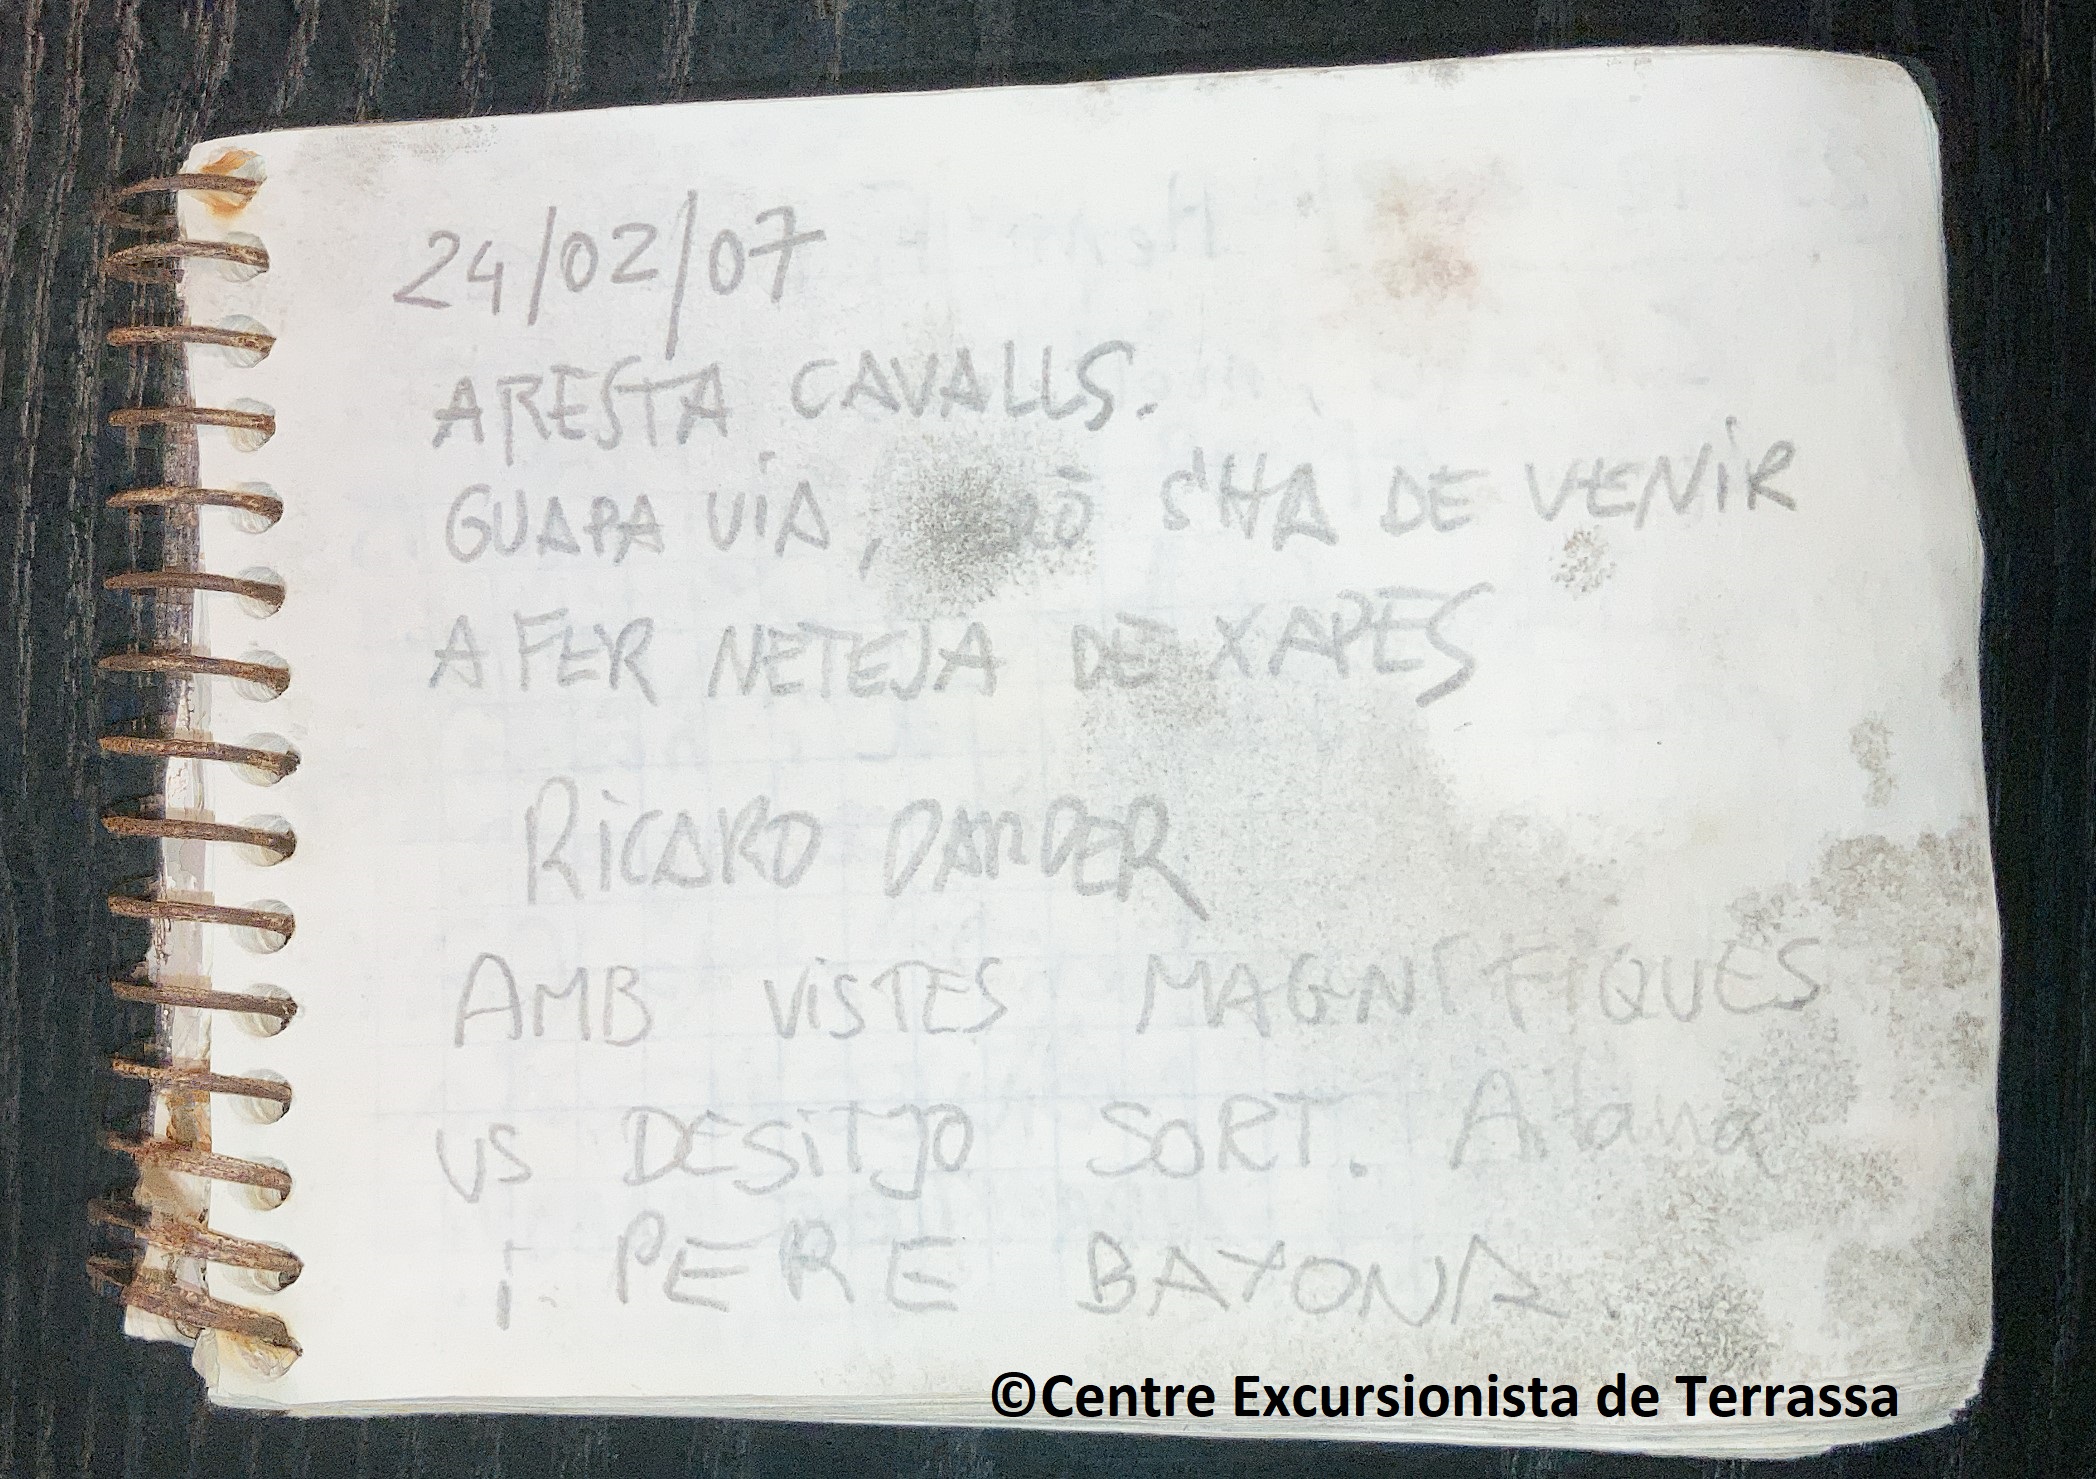 24/02/07
ARESTA CAVALLS.
GUAPA VIA, S'HA DE VENIR
A FER NETEJA DE XAPES
RICARD DANDER
AMB VISTES MAGNÍFIQUES
US DESITJO SORT. Aitana
i PERE BAYONA.
©Centre Excursionista de Terrassa